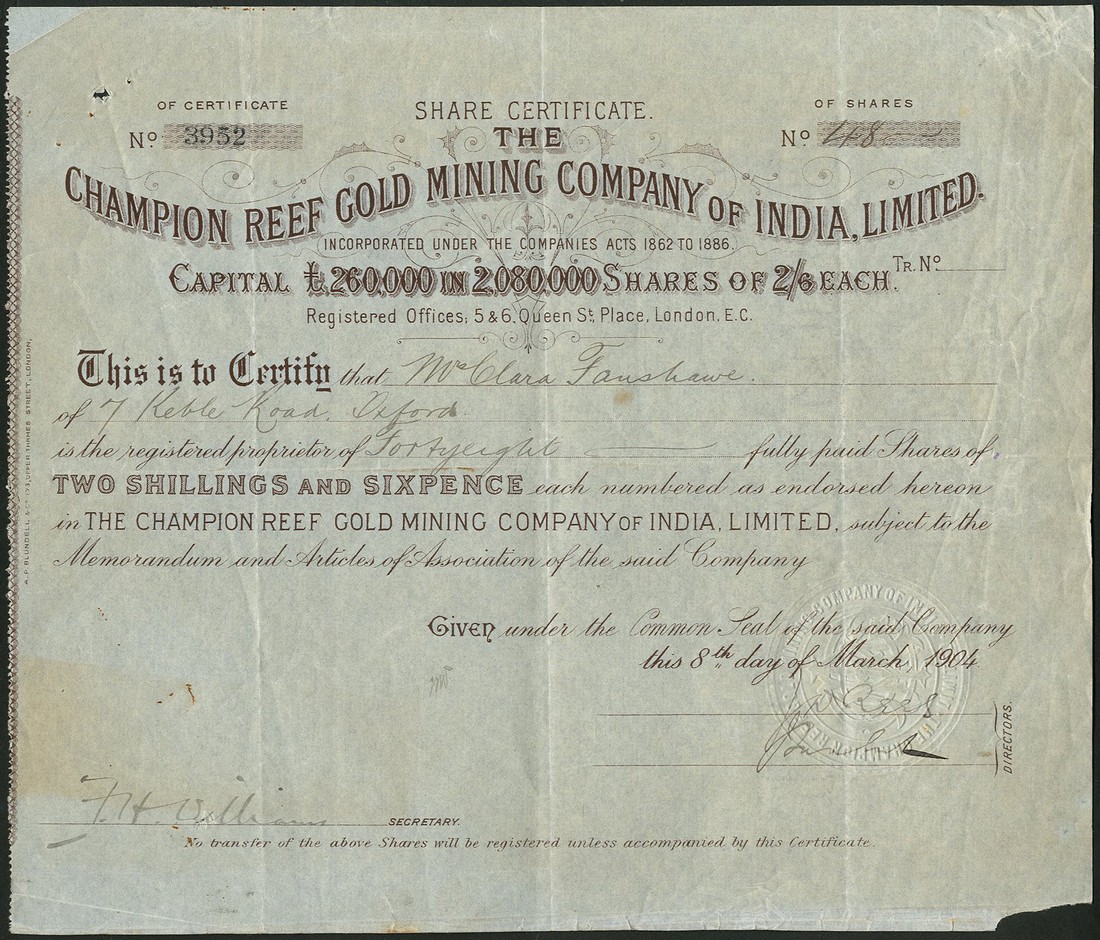 OF CERTIFICATE
No 3952
SHARE CERTIFICATE.
OF SHARES
No 48
THE
CHAMPION REEF GOLD MINING COMPANY OF INDIA, LIMITED.
INCORPORATED UNDER THE COMPANIES ACTS 1862 TO 1886.
CAPITAL £260,000 IN 2,080,000 SHARES OF 2/6 EACH.
TR. No
Registered Offices; 5 & 6, Queen St, Place, London, E.C.
This is to Certify that Clara Fanshawe.
of 7 Keble Road, Oxford
is the registered proprietor of Fortyeight fully paid Shares of
TWO SHILLINGS AND SIXPENCE each numbered as endorsed hereon
in THE CHAMPION REEF GOLD MINING COMPANY OF INDIA, LIMITED, subject to the
Memorandum and Articles of Association of the said Company
Given under the Common Seal of the said Company
this 8th day of March, 1904
J D Rees
DIRECTORS.
F. H. Williams
SECRETARY.
No transfer of the above Shares will be registered unless accompanied by this Certificate.
THAMES STREET, LONDON,
COMPANY OF